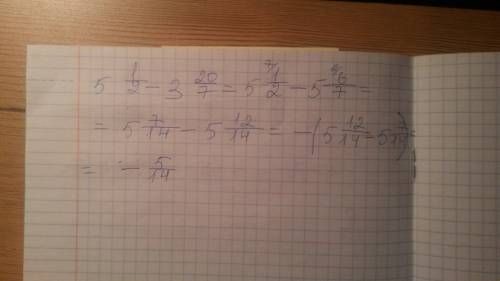 5 1/2 - 3 20/7 = 5 7/ 1/2 - 5 2/ 6/7 =
= 5 7/14 - 5 12/14 = - (5 12/14 - 5 7/14) =
= - 5/14